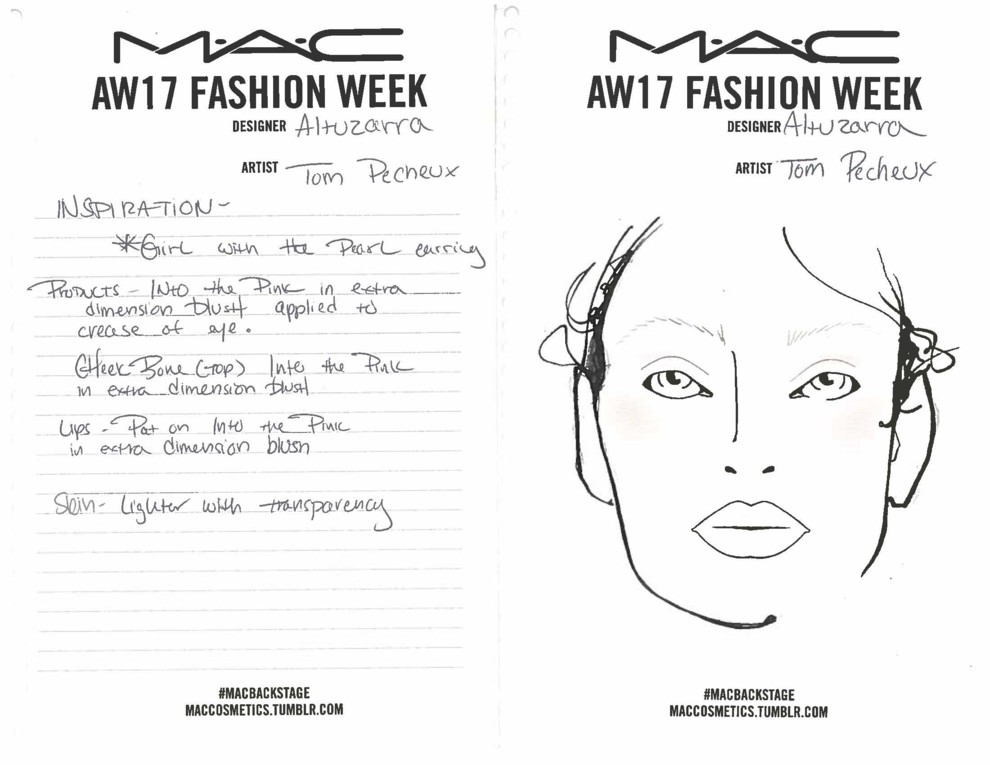 M·A·C
AW17 FASHION WEEK
DESIGNER Altuzarra
ARTIST Tom Pecheux
INSPIRATION-
*Girl with the Pearl earring
Products - Into the Pink in extra
dimension blush applied to
crease of eye.
Cheek-Bone (top) Into the Pink
in extra dimension blush
Lips - Pat on Into the Pink
in extra dimension blush
Skin- Lighter with transparency
#MACBACKSTAGE
MACCOSMETICS.TUMBLR.COM
M·A·C
AW17 FASHION WEEK
DESIGNER Altuzarra
ARTIST Tom Pecheux
#MACBACKSTAGE
MACCOSMETICS.TUMBLR.COM